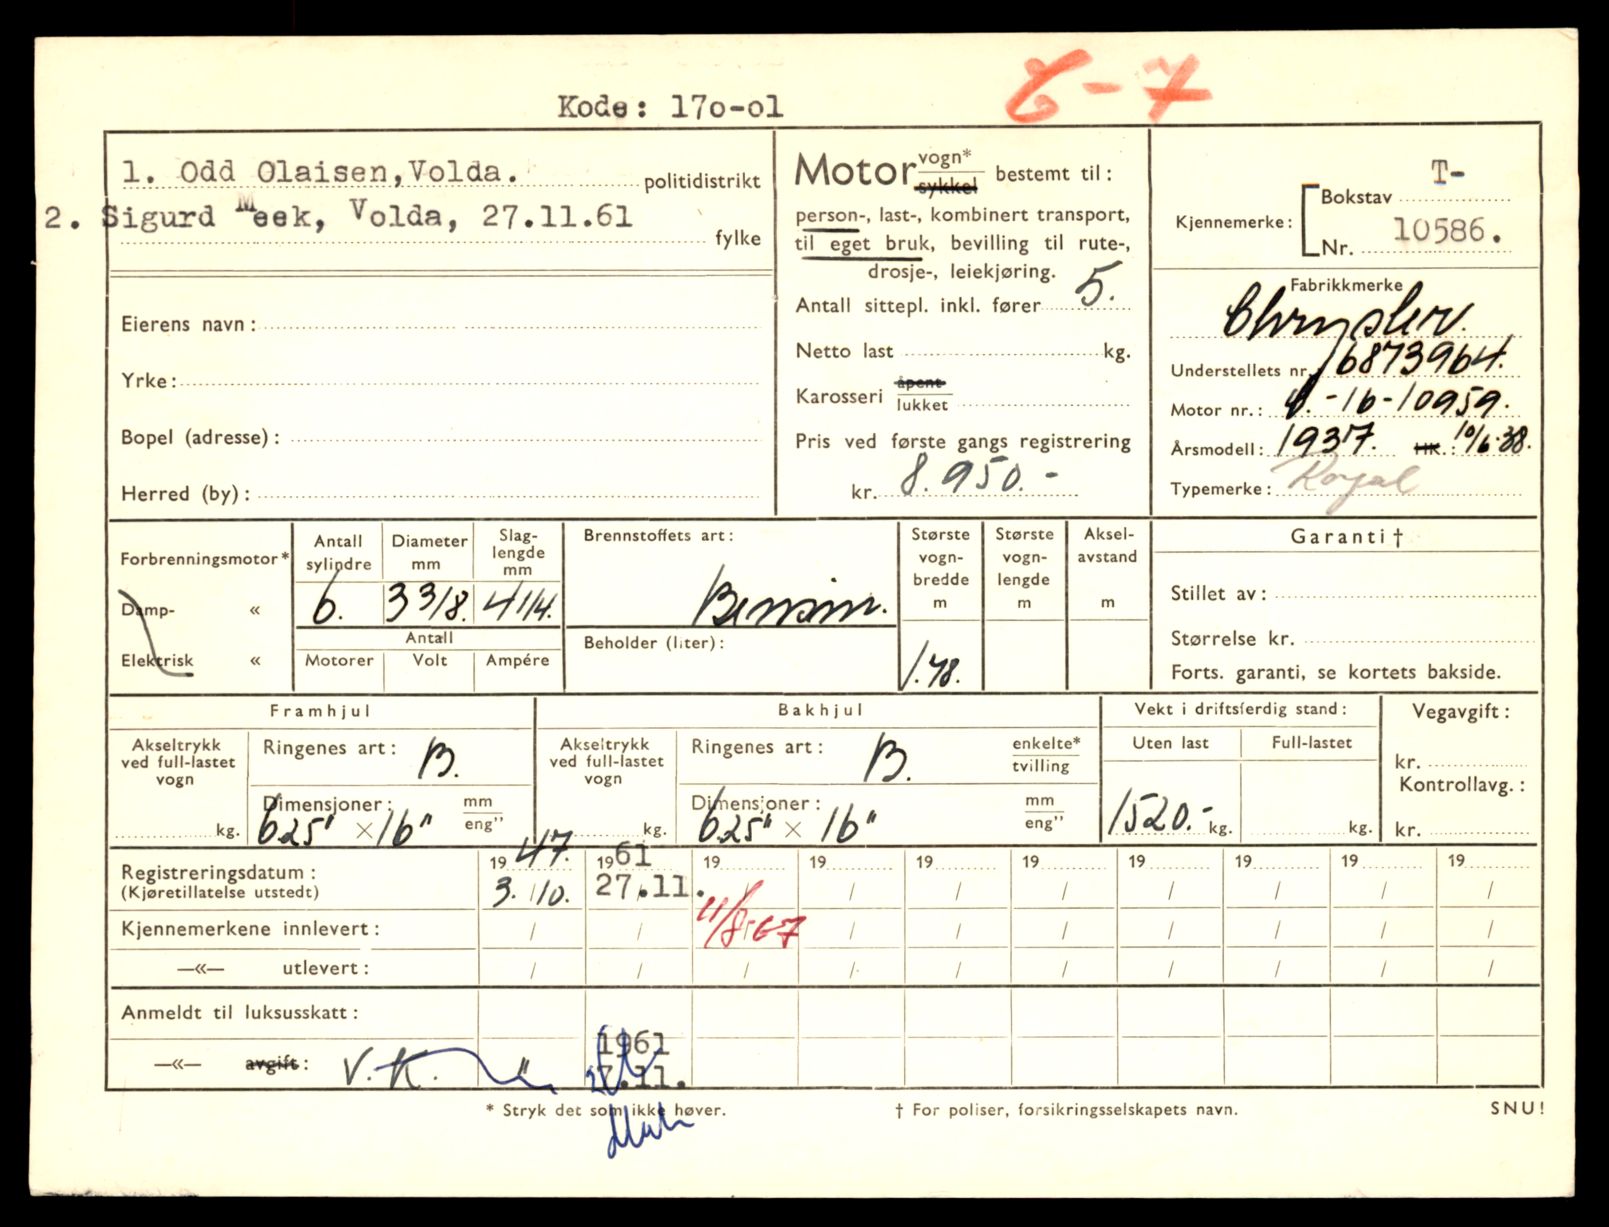 Kode: 17o-o1
6-7
1. Odd Olaisen,Volda. politidistrikt
2. Sigurd Meek, Volda, 27.11.61
fylke
Eierens navn:
Yrke:
Bopel (adresse):
Herred (by):
Motor vogn* sykkel bestemt til:
person-, last-, kombinert transport,
til eget bruk, bevilling til rute-,
drosje-, leiekjøring.
Antall sittepl. inkl. fører 5.
Netto last kg.
Karosseri åpent lukket
Pris ved første gangs registrering
kr. 8.950.-
Kjennemerke: Bokstav T-
Nr. 10586.
Fabrikkmerke
Chrysler.
Understellets nr. 6873964.
Motor nr.: -16-10959.
Årsmodell: 1937. HK.: 10/6.38.
Typemerke: Royal
Forbrenningsmotor*
Damp- «
Elektrisk «
Antall sylindre
6.
Diameter mm
3 3/8.
Slag-lengde mm
4 1/4.
Antall
Motorer Volt Ampére
Brennstoffets art:
Bensin.
Beholder (liter):
Største vogn-bredde m
1.78.
Største vogn-lengde m
Aksel-avstand m
Garanti †
Stillet av:
Størrelse kr.
Forts. garanti, se kortets bakside.
Framhjul
Akseltrykk ved full-lastet vogn
kg.
Ringenes art: B.
Dimensjoner: mm eng''
625" × 16"
Bakhjul
Akseltrykk ved full-lastet vogn
kg.
Ringenes art: B. enkelte* tvilling
Dimensjoner: mm eng''
625" × 16"
Vekt i driftsferdig stand:
Uten last Full-lastet
1520.- kg. kg.
Vegavgift:
kr.
Kontrollavg.:
kr.
Registreringsdatum: 19 47. 19 61 19 19 19 19 19 19 19 19
(Kjøretillatelse utstedt) 3. / 10. 27.11. / / / / / / / /
Kjennemerkene innlevert: / / 11/8-67 / / / / / / /
—«— utlevert: / / / / / / / / / /
Anmeldt til luksusskatt:
—«— avgift: V.K. " 1961
27.11.
* Stryk det som ikke høver. † For poliser, forsikringsselskapets navn. SNU!